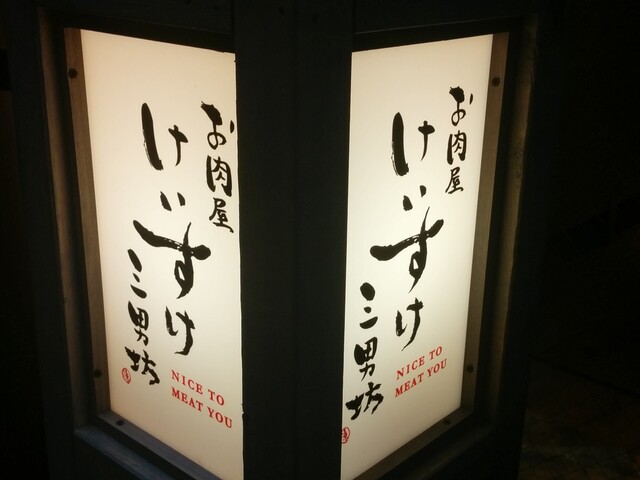 お肉屋
けいすけ
三男坊
NICE TO
MEAT YOU
お肉屋
けいすけ
三男坊
NICE TO
MEAT YOU